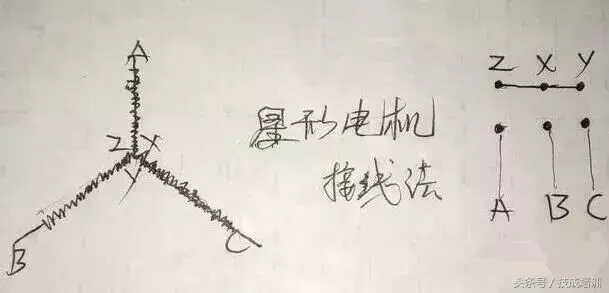 A
Z X
Y
B
C
星形电机
接线法
Z X Y
A B C
头条号 / 技成培训